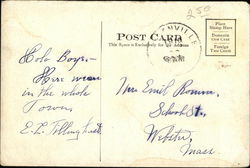 250
POST CARD
This Space is Exclusively for the Address
Place
Stamp Here
Domestic
One Cent
Foreign
Two Cents
Holo Boys,-
Here we are
in the whole
Town,
E. L.
Mrs Emil
School St.,
Webster,
Mass